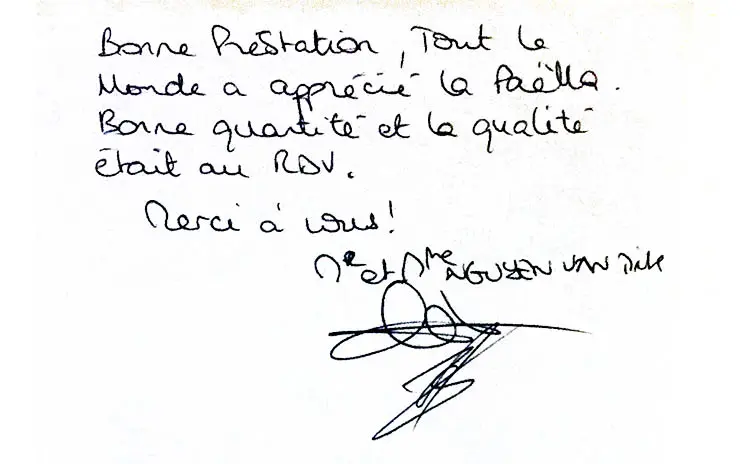 Bonne Prestation, Tout le
Monde a apprécié la Paëlla.
Bonne quantité et la qualité
était au RDV.
Merci à vous!
Mr et Mme NGUYEN VAN